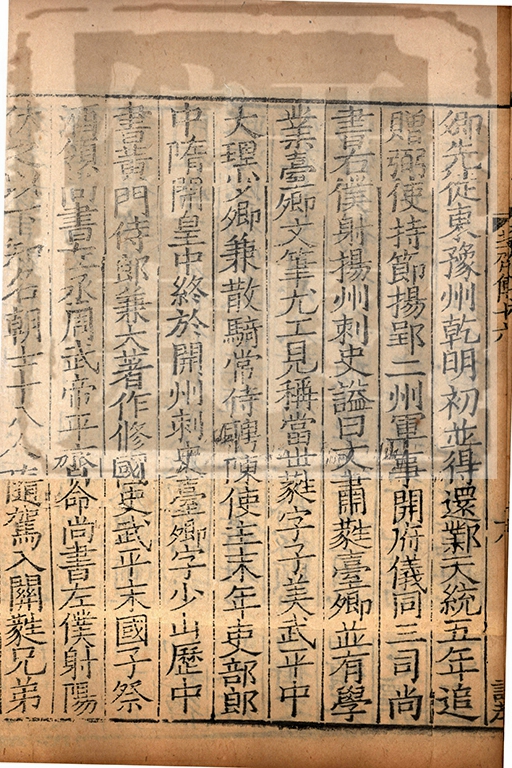 卿先徙東豫州乾明初並得還鄴天統五年追
贈弼使持節揚郢二州軍事開府儀同三司尚
書右僕射揚州刺史謚曰文肅蕤臺卿並有學
業臺卿文筆尤工見稱當世蕤字子美武平中
大理少卿兼散騎常侍聘陳使主末年吏部郎
中隋開皇中終於開州刺史臺卿字少山歷中
書黃門侍郎兼大著作修國史武平末國子祭
酒領尚書左丞周武帝平齊命尚書左僕射陽
休之以下知名朝士十八人隨駕入關蕤兄弟